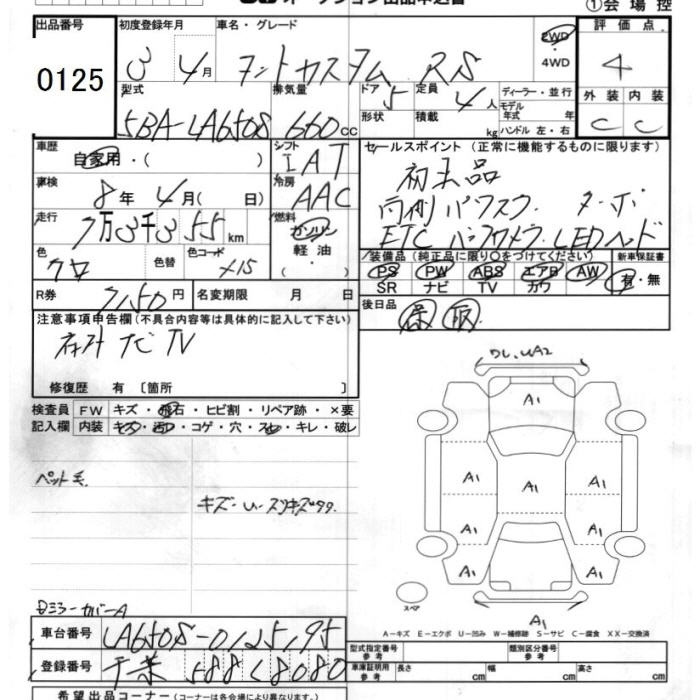 オークション出品申込書
①会場控
出品番号 初度登録年月 車名・グレード 評価点
0125 3 4月 タントカスタム RS 2WD 4WD 4
型式 排気量 ドア 定員 ディーラー・並行 外装 内装
5BA-LA650S 660cc 5 4人 モデル年式 年 C C
形状 積載 kg ハンドル 左・右
車歴 シフト セールスポイント (正常に機能するものに限ります)
自家用・( ) IAT 初出品
車検 冷房
8年 4月( 日) AAC 両側パワスラ ターボ
走行 燃料
7万3千355km ガソリン ETC バックカメラ LEDヘッド
色 色替 色コード 軽油
クロ X15 ・
装備品 (純正品に限り○をつけてください) 新車保証書
PS PW ABS エアB AW 有・無
SR ナビ TV カワ
R券 7150円 名変期限 月 日
後日品 保 取
注意事項申告欄(不具合内容等は具体的に記入して下さい)
ナビ TV
修復歴 有 〔箇所 〕
検査員 FW キズ・飛石・ヒビ割・リペア跡・×要
記入欄 内装 キズ・汚レ・コゲ・穴・スレ・キレ・破レ
ペット毛
キズ・U・スリキズタタ
DミラーカバーA
ワレ、UA2
A1
A1 A1 A1
A1 A1
A1 A1
スペア
A1
A-キズ E-エクボ U-凹み W-補修跡 S-サビ C-腐食 XX-交換済
車台番号 LA650S-0125195
登録番号 千葉 588 く 8080
型式指定番号 参考 類別区分番号 参考
車庫証明用 参考 長さ cm 幅 cm 高さ cm
希望出品コーナー(コーナーは各会場により異なります。)